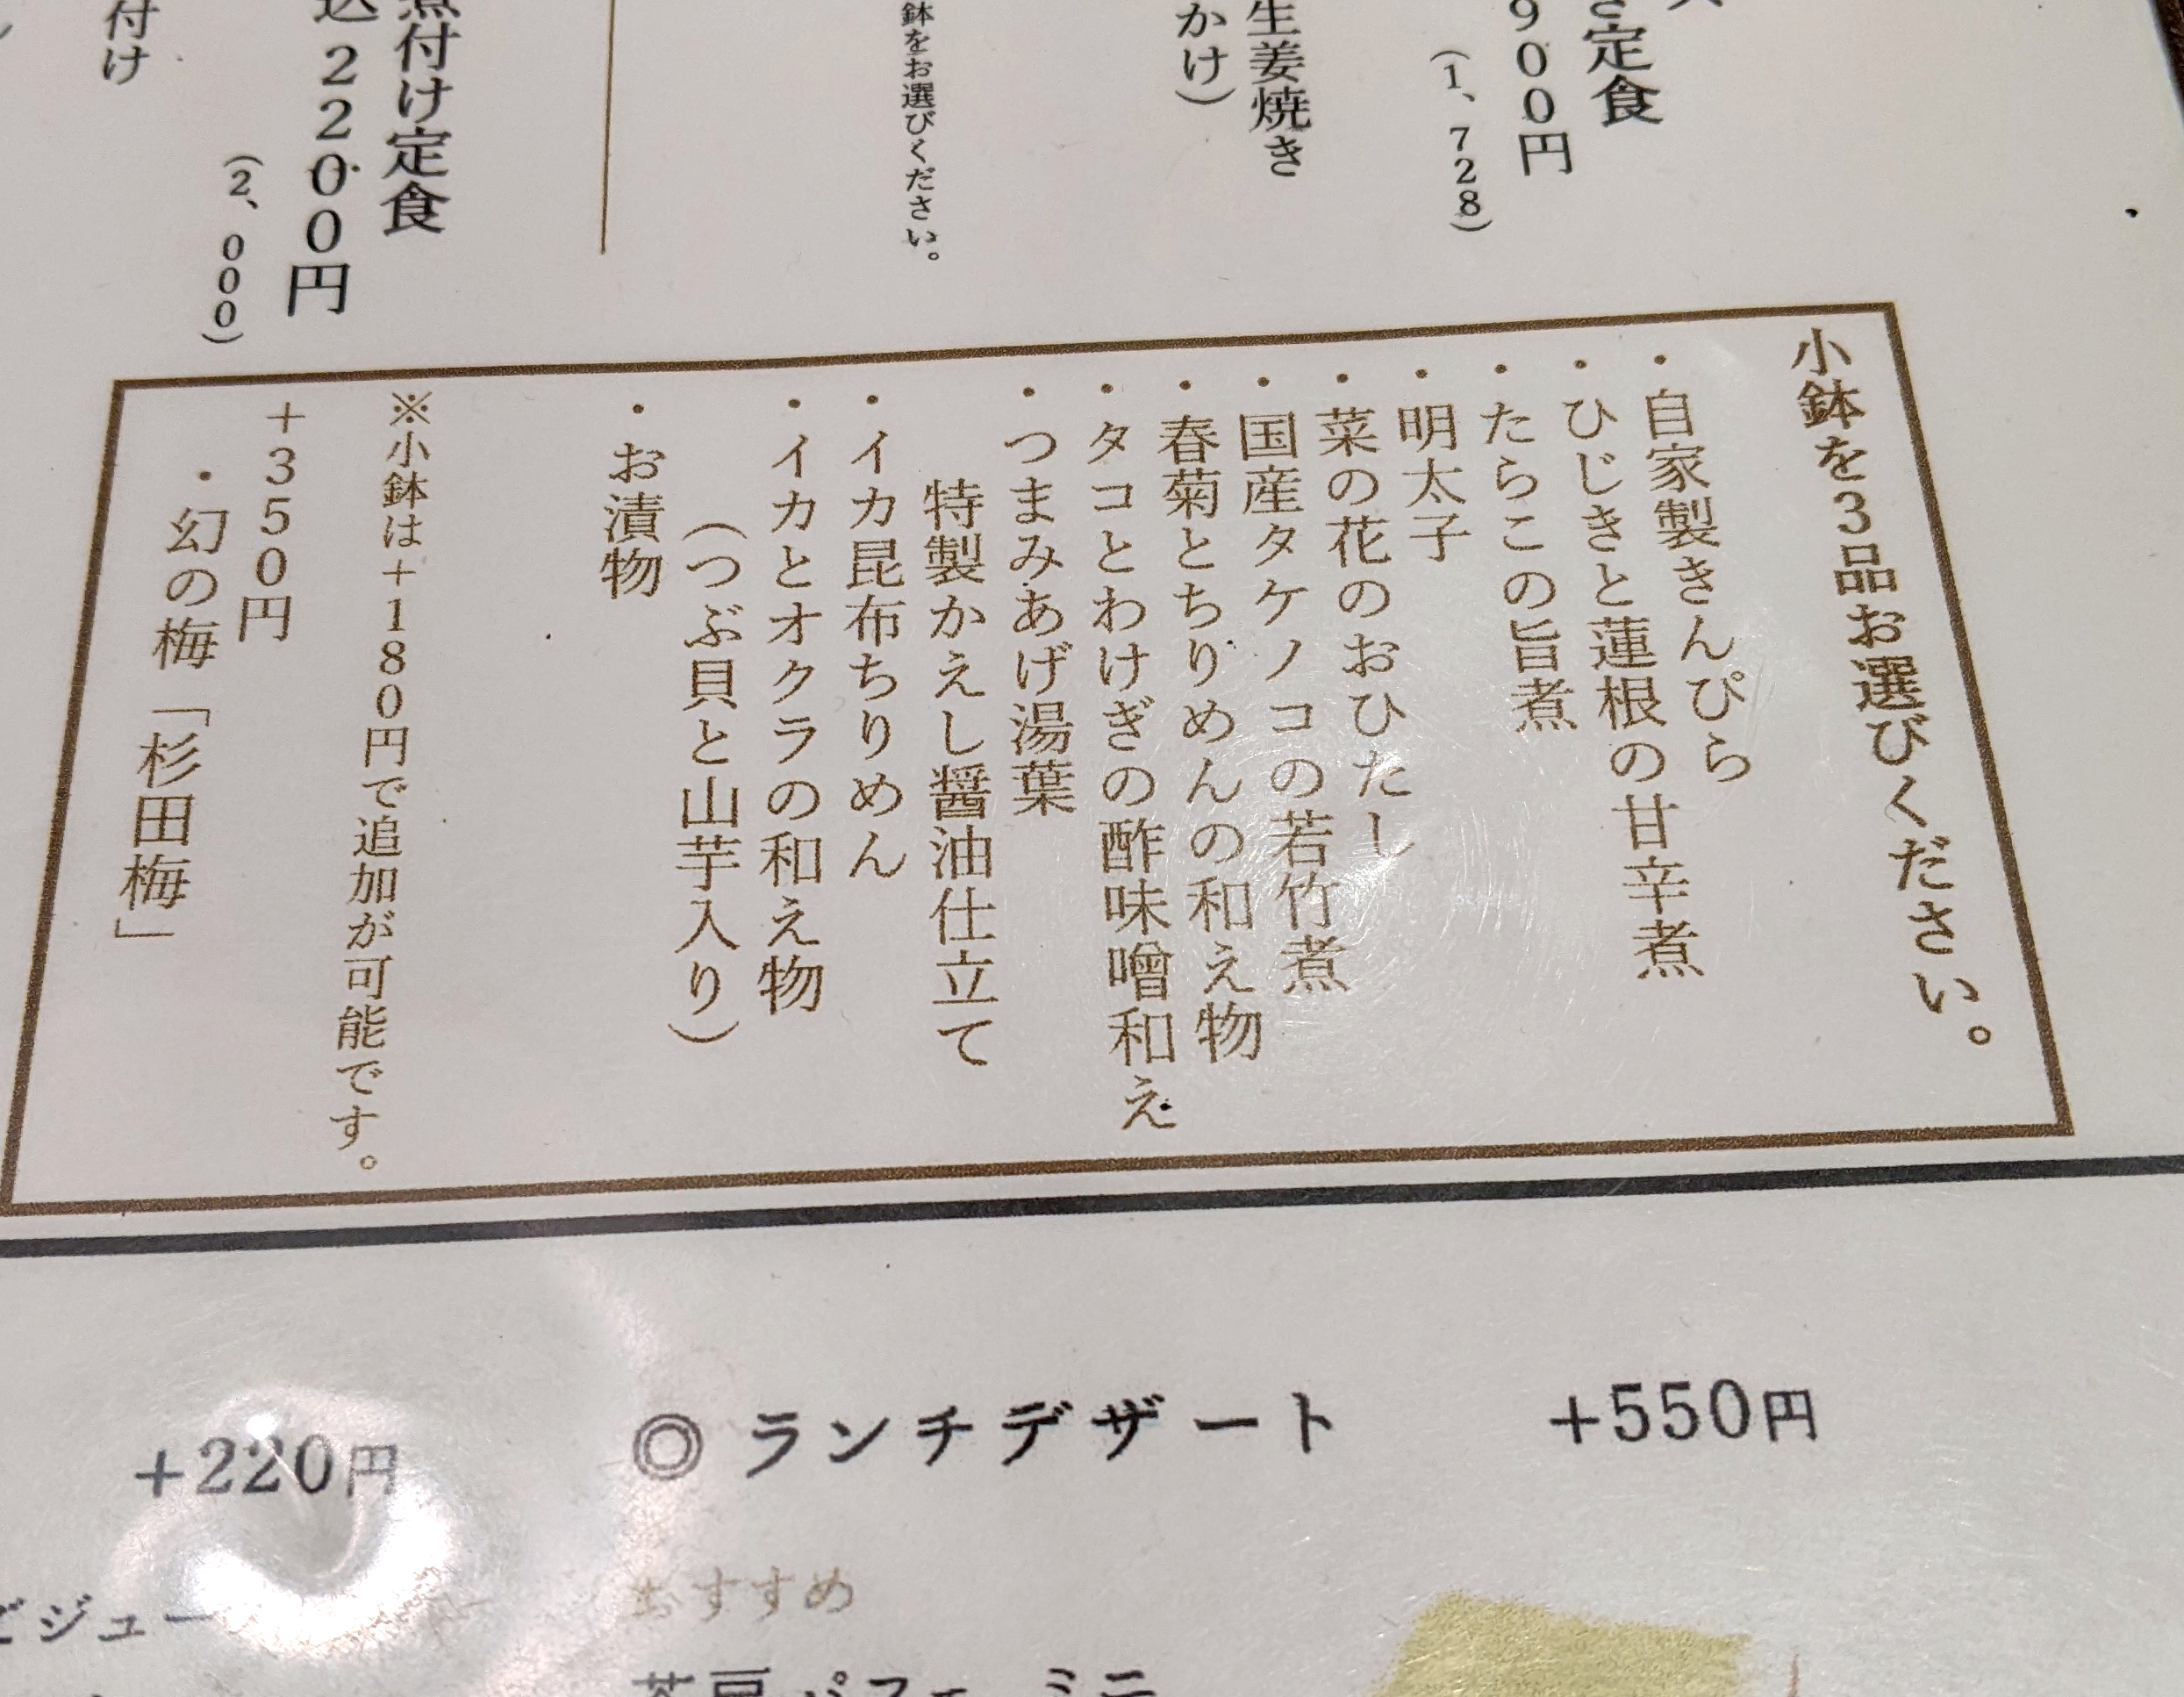 定食
900円
(1、728)
生姜焼き
かけ)
鉢をお選びください。
煮付け定食
込2200円
(2、000)
付け
小鉢を3品お選びください。
・自家製きんぴら
・ひじきと蓮根の甘辛煮
・たらこの旨煮
・明太子
・菜の花のおひたし
・国産タケノコの若竹煮
・春菊とちりめんの和え物
・タコとわけぎの酢味噌和え
・つまみあげ湯葉
特製かえし醤油仕立て
・イカ昆布ちりめん
・イカとオクラの和え物
(つぶ貝と山芋入り)
・お漬物
※小鉢は+180円で追加が可能です。
+350円
・幻の梅「杉田梅」
+220円
ジュー
◎ランチデザート +550円
おすすめ
パフェ ミニ